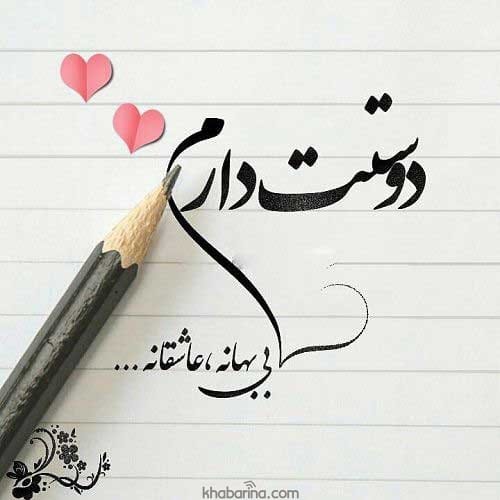 دوستت دارم
بی بهانه، عاشقانه ...
khabarina.com